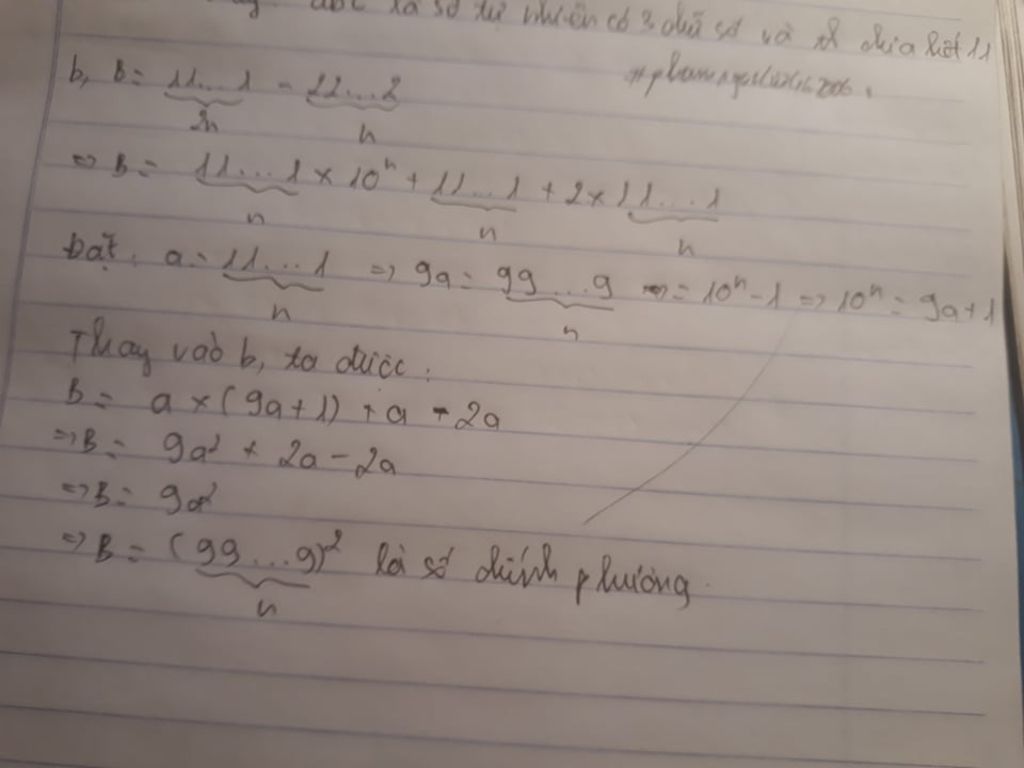 abc là số tự nhiên có 3 chữ số và chia hết 11
b, B = 11...1 - 22...2
2n n
=> B = 11...1 × 10ⁿ + 11...1 + 2 × 11...1
n n n
Đặt: a = 11...1 => 9a = 99...9 = 10ⁿ - 1 => 10ⁿ = 9a + 1
n n
Thay vào b, ta được:
B = a × (9a + 1) + a - 2a
=> B = 9a² + 2a - 2a
=> B = 9a²
=> B = (99...9)² là số chính phương.
n